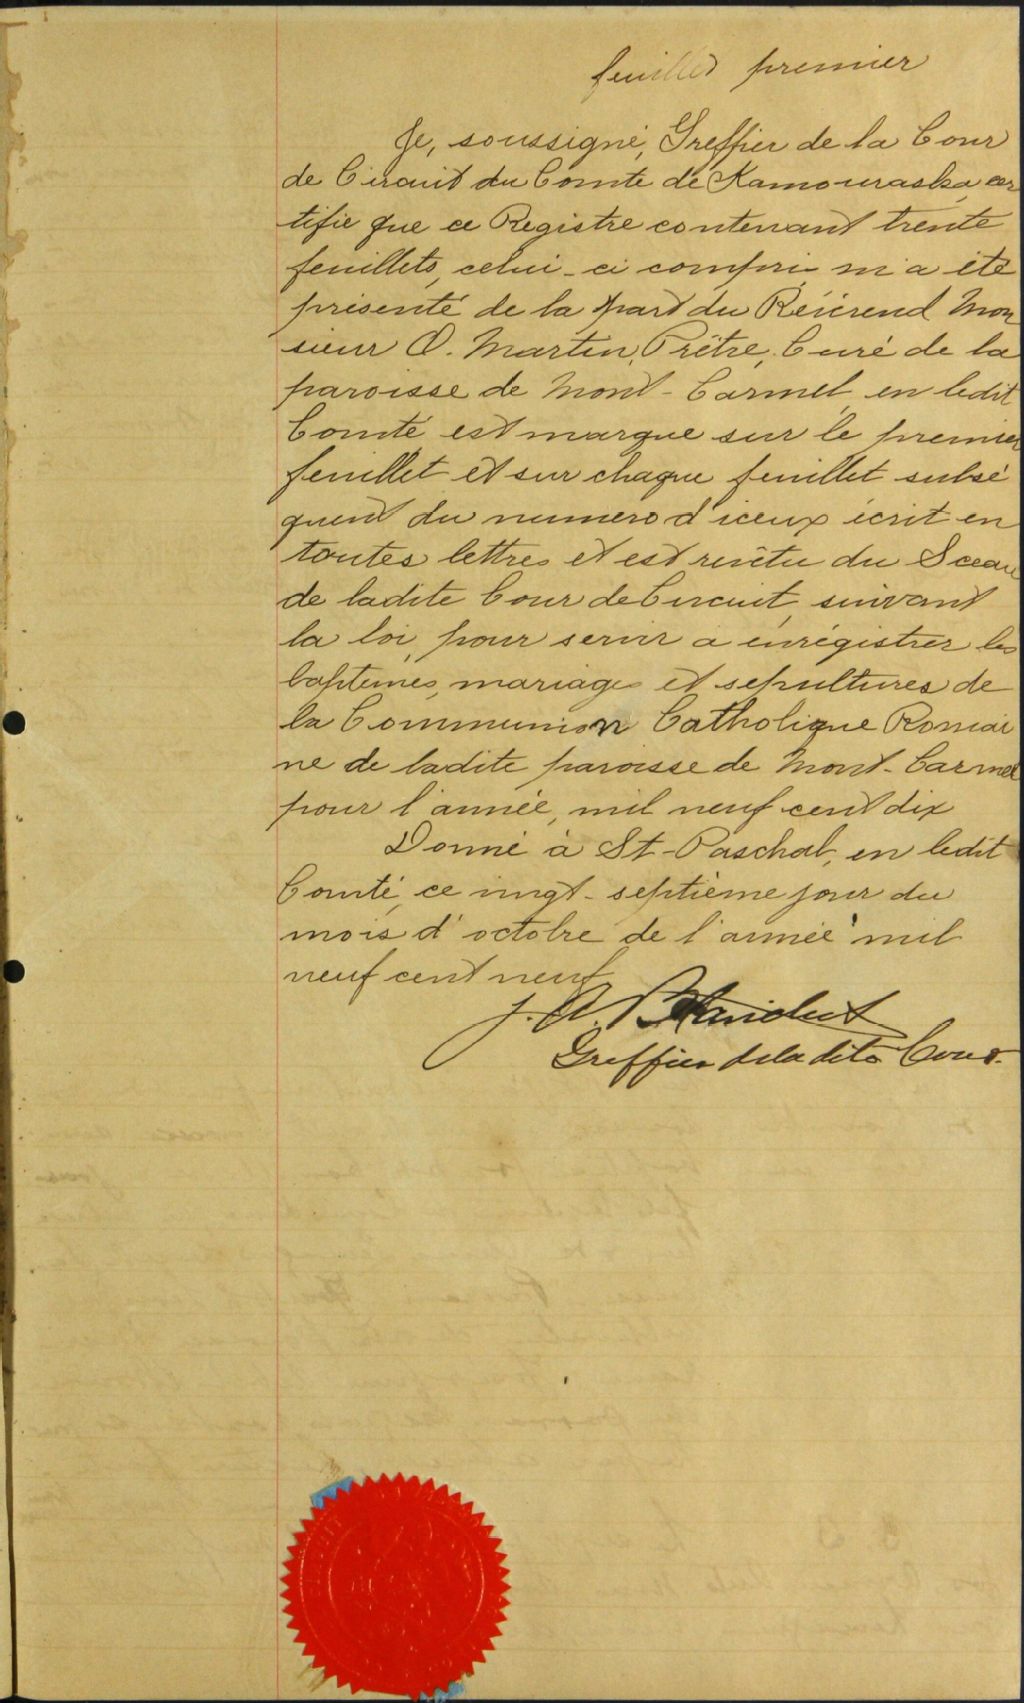 feuillet premier
Je, soussigné, Greffier de la Cour
de Circuit du Comté de Kamouraska, cer
tifie que ce Registre contenant trente
feuillets, celui-ci compris m'a été
présenté de la part du Révérend Mon
sieur O. Martin, Prêtre, Curé de la
paroisse de Mont-Carmel, en ledit
Comté est marqué sur le premier
feuillet et sur chaque feuillet subsé
quent du numero d'iceux écrit en
toutes lettres et est revêtu du Sceau
de ladite Cour de Circuit, suivant
la loi, pour servir a enrégistrer les
baptêmes, mariages et sepultures de
la Communion Catholique Romai
ne de ladite paroisse de Mont-Carmel
pour l'année, mil neuf cent dix
Donné à St-Paschal, en ledit
Comté, ce vingt-septième jour du
mois d'octobre de l'année mil
neuf cent neuf
J. A.
Greffier de la dite Cour.